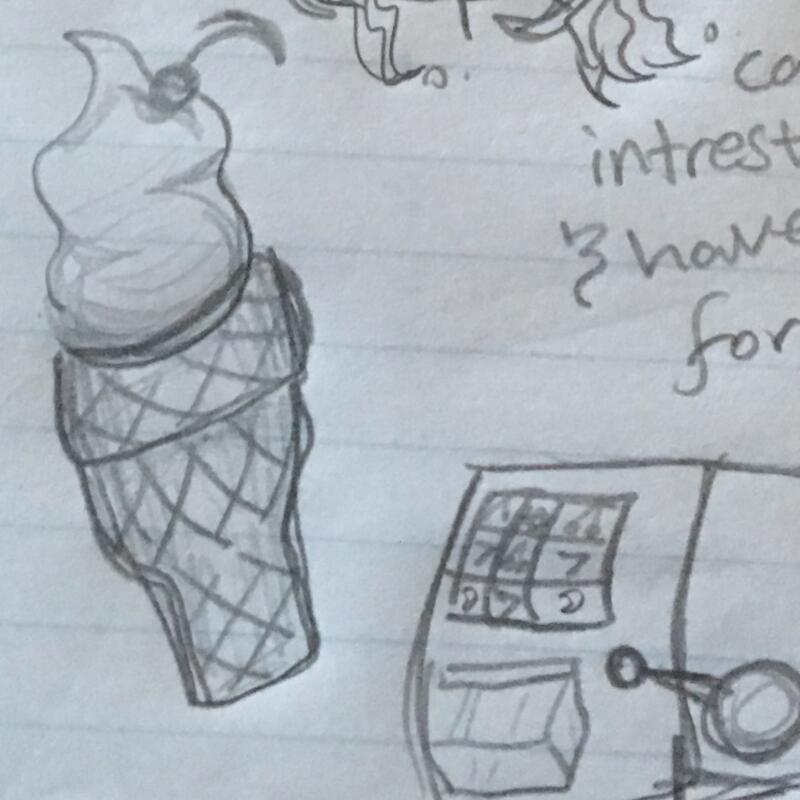 co
intrest
& have
for
7
7